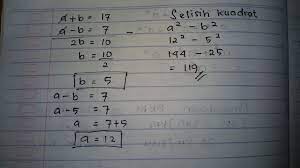 a + b = 17
a - b = 7 -
2b = 10
b = 10/2
b = 5
a - b = 7
a - 5 = 7
a = 7+5
a = 12
Selisih kuadrat
a² - b²
12² - 5²
144 - 25
= 119